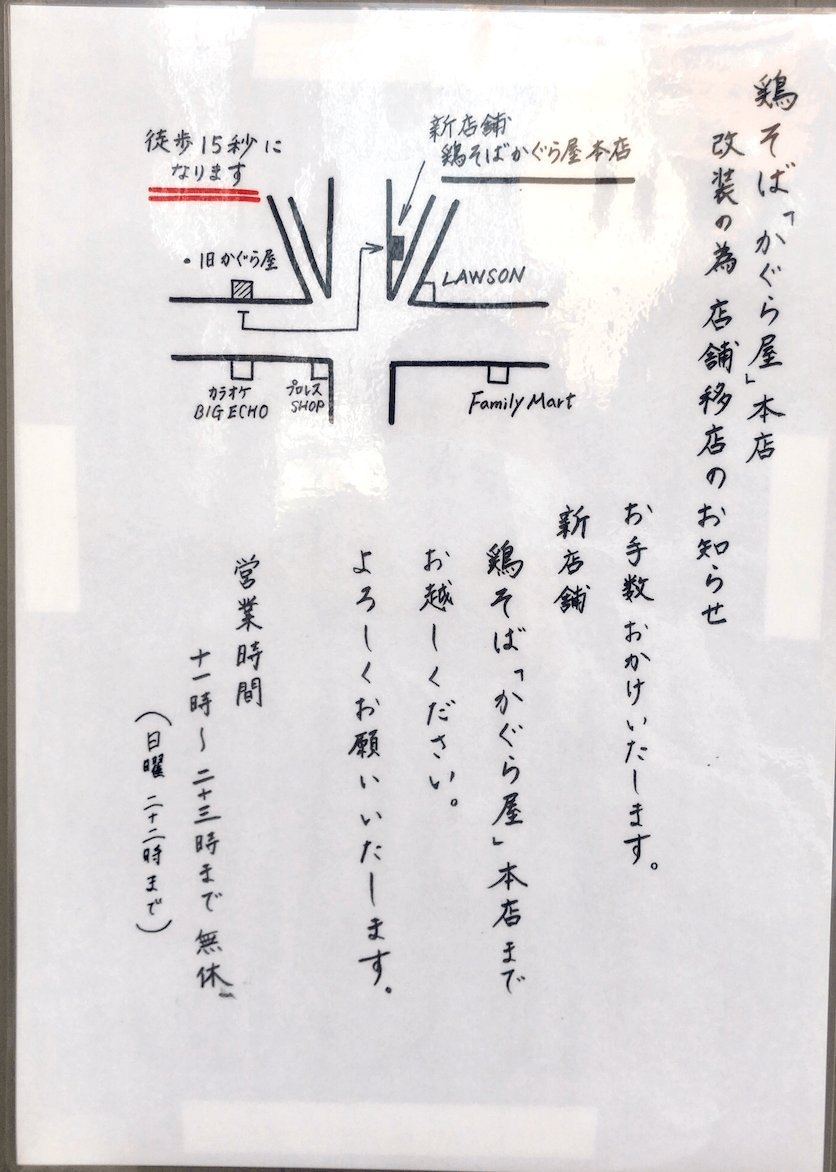 鶏そば「かぐら屋」本店
改装の為 店舗移店のお知らせ
お手数おかけいたします。
新店舗
鶏そば「かぐら屋」本店まで
お越しください。
よろしくお願いいたします。
営業時間
十一時～二十三時まで 無休
(日曜 二十二時まで)
徒歩15秒に
なります
新店舗
鶏そばかぐら屋本店
・旧かぐら屋
LAWSON
カラオケ
BIG ECHO
プロレス
SHOP
Family Mart